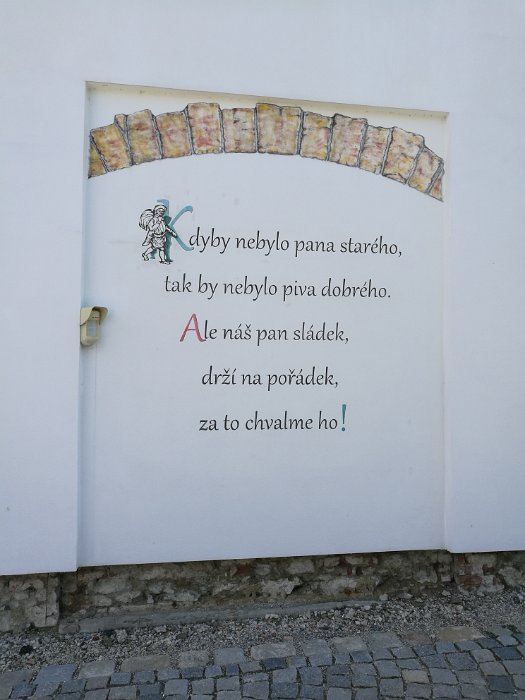 Kdyby nebylo pana starého,
tak by nebylo piva dobrého.
Ale náš pan sládek,
drží na pořádek,
za to chvalme ho!